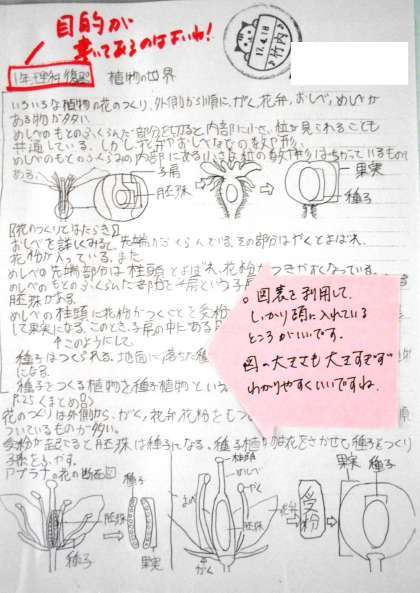 目的が
書いてあるのはよいね！
17.4.18
竹内
1年理科復習 植物の世界
いろいろな植物の花のつくり,外側から順に,がく,花弁,おしべ,めしべが
ある物が多い。
めしべのもとのふくらんだ部分を切ると内部に小さい粒が見られることも
共通している。しかし花弁やおしべなどの数や形、
めしべのもとのふくらみの内部にある小さな粒の数や形はちがっているものも
ある。
子房
胚珠
果実
種子
[花のつくりとはたらき]
おしべを詳しくみると,先端がふくらんでいる。その部分はやくとよばれ,
花粉が入っている。また
めしべの先端部分は柱頭とよばれ,花粉がつきやすくなっている。
めしべのもとのふくらんだ部分を子房という
胚珠がある。
めしべの柱頭に花粉がつくことを受粉
して果実になる。このとき,子房の中にある
↑このようにして
種子はつくられる。地面に落ちた種
になる。
種子をつくる植物を種子植物という
P.25 (まとめ)
花のつくりは外側から,がく,花弁,花粉をもつ
ついているものが多い。
受粉が起こると胚珠は種子になる。種子植物は花をさかせて種子をつくり
子孫をふやす。
アブラナの花の断面図
。図表を利用して、
しっかり頭に入れている
ところがいいです。
図の大きさも大きすぎず
わかりやすくいいですね。
胚珠
種子
種子
果実
柱頭
めしべ
やく
胚珠
花弁
がく
受粉
果実
種子